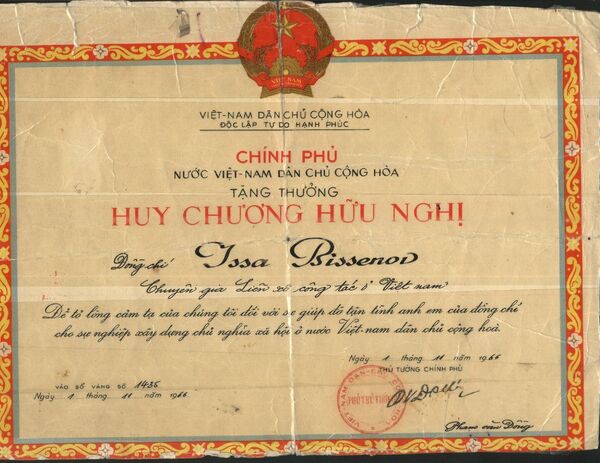 VIỆT-NAM DÂN CHỦ CỘNG HÒA
ĐỘC LẬP TỰ DO HẠNH PHÚC
CHÍNH PHỦ
NƯỚC VIỆT-NAM DÂN CHỦ CỘNG HÒA
TẶNG THƯỞNG
HUY CHƯƠNG HỮU NGHỊ
Đồng chí Issa Bissenov
Chuyên gia Liên xô công tác ở Việt nam
Để tỏ lòng cảm tạ của chúng tôi đối với sự giúp đỡ tận tình anh em của đồng chí
cho sự nghiệp xây dựng chủ nghĩa xã hội ở nước Việt-nam dân chủ cộng hoà.
Ngày 1 tháng 11 năm 1966
THỦ TƯỚNG CHÍNH PHỦ
VÀO SỔ VÀNG SỐ 1435
Ngày 1 tháng 11 năm 1966
Phạm văn Đồng